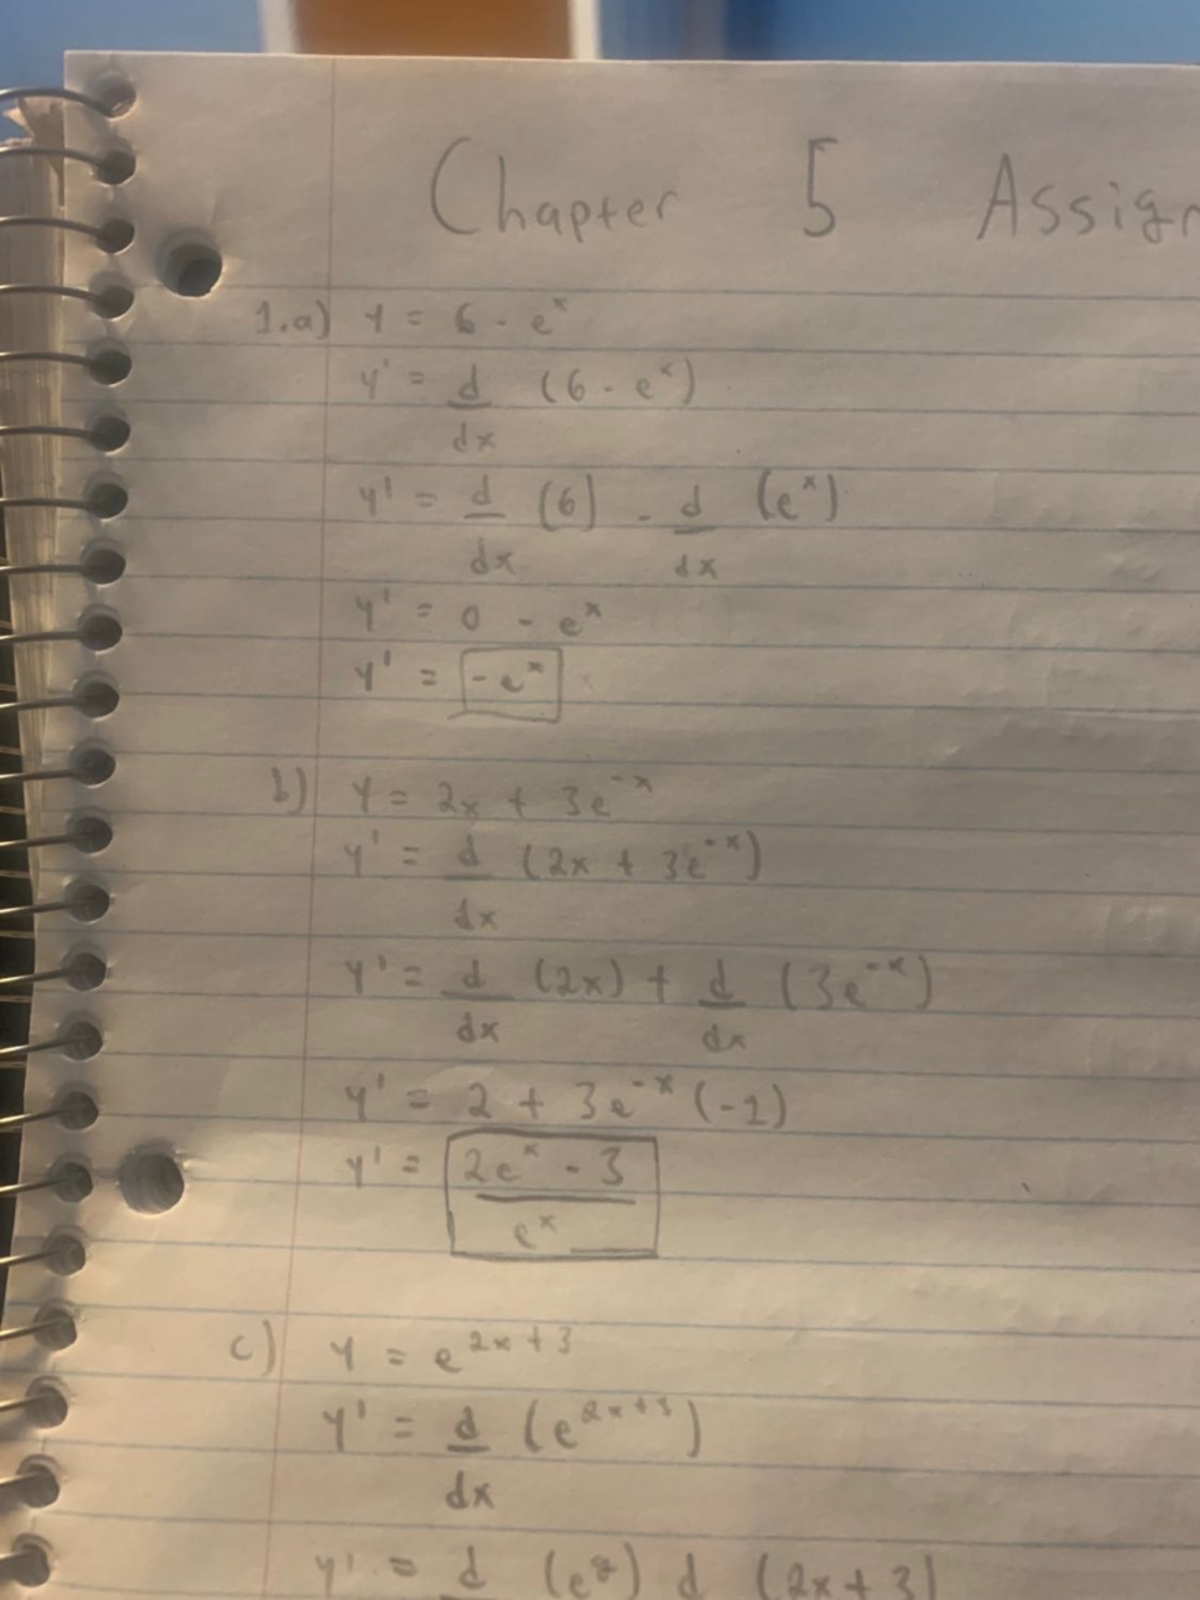 Chapter 5 Assign
1.a) y = 6 - e^x
y' = d/dx (6 - e^x)
y' = d/dx (6) - d/dx (e^x)
y' = 0 - e^x
y' = -e^x
b) y = 2x + 3e^-x
y' = d/dx (2x + 3e^-x)
y' = d/dx (2x) + d/dx (3e^-x)
y' = 2 + 3e^-x (-1)
y' = 2e^x - 3 / e^x
c) y = e^2x+3
y' = d/dx (e^2x+3)
y' = d (e) d (2x + 3)